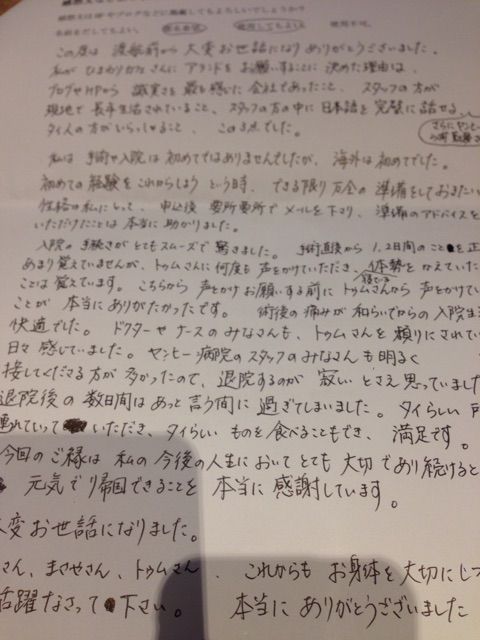 感想文は
やブログなどに掲載してもよろしいでしょうか？
名前をだしてもよい。 匿名希望 使用してもよい 使用不可。
この度は 渡航前から 大変お世話になり ありがとうございました。
私が ひまわりカフェさんに アテンドを お願いすることに 決めた理由は、
ブログやHPから 誠実さを 最も感じた 会社であったこと、 スタッフの方が
現地で 長年生活されていること、 スタッフの方の中に 日本語を 完璧に 話せる
タイ人の方がいらっしゃること、 この3点でした。
さらにヤンヒー
私は 手術や入院は 初めてではありませんでしたが、 海外は初めてでした。
初めての経験をこれからしようという時、 できる限り 万全の 準備をしておきたい
性格の私にとって、 申込後 要所要所で メールを下さり、 準備のアドバイスを
いただけたことは 本当に助かりました。
入院の手続きがとてもスムーズで 驚きました。 手術直後から 1、2日間のことを正
あまり覚えていませんが、トゥムさんに何度も 声をかけていただき、体勢をかえていた
ことは 覚えています。 こちらから 声をかけお願いする前に トゥムさんから 声をかけてい
ことが 本当にありがたかったです。 術後の痛みが 和らいでからの 入院生活
快適でした。 ドクターや ナースのみなさんも、 トゥムさんを 頼りにされてい
日々 感じていました。 ヤンヒー病院のスタッフのみなさんも 明るく
接してくださる方が 多かったので、 退院するのが 寂しいとさえ 思っていました
退院後の 数日間は あっと言う間に 過ぎてしまいました。 タイらしい
連れていって いただき、 タイらしい ものを 食べることもでき、 満足です。
今回のご縁は 私の今後の人生において とても 大切であり続けると
元気で帰国できることを 本当に 感謝しています。
大変お世話になりました。
さん、まさやさん、トゥムさん、 これからも お身体を大切にして
活躍なさって 下さい。 本当に ありがとうございました